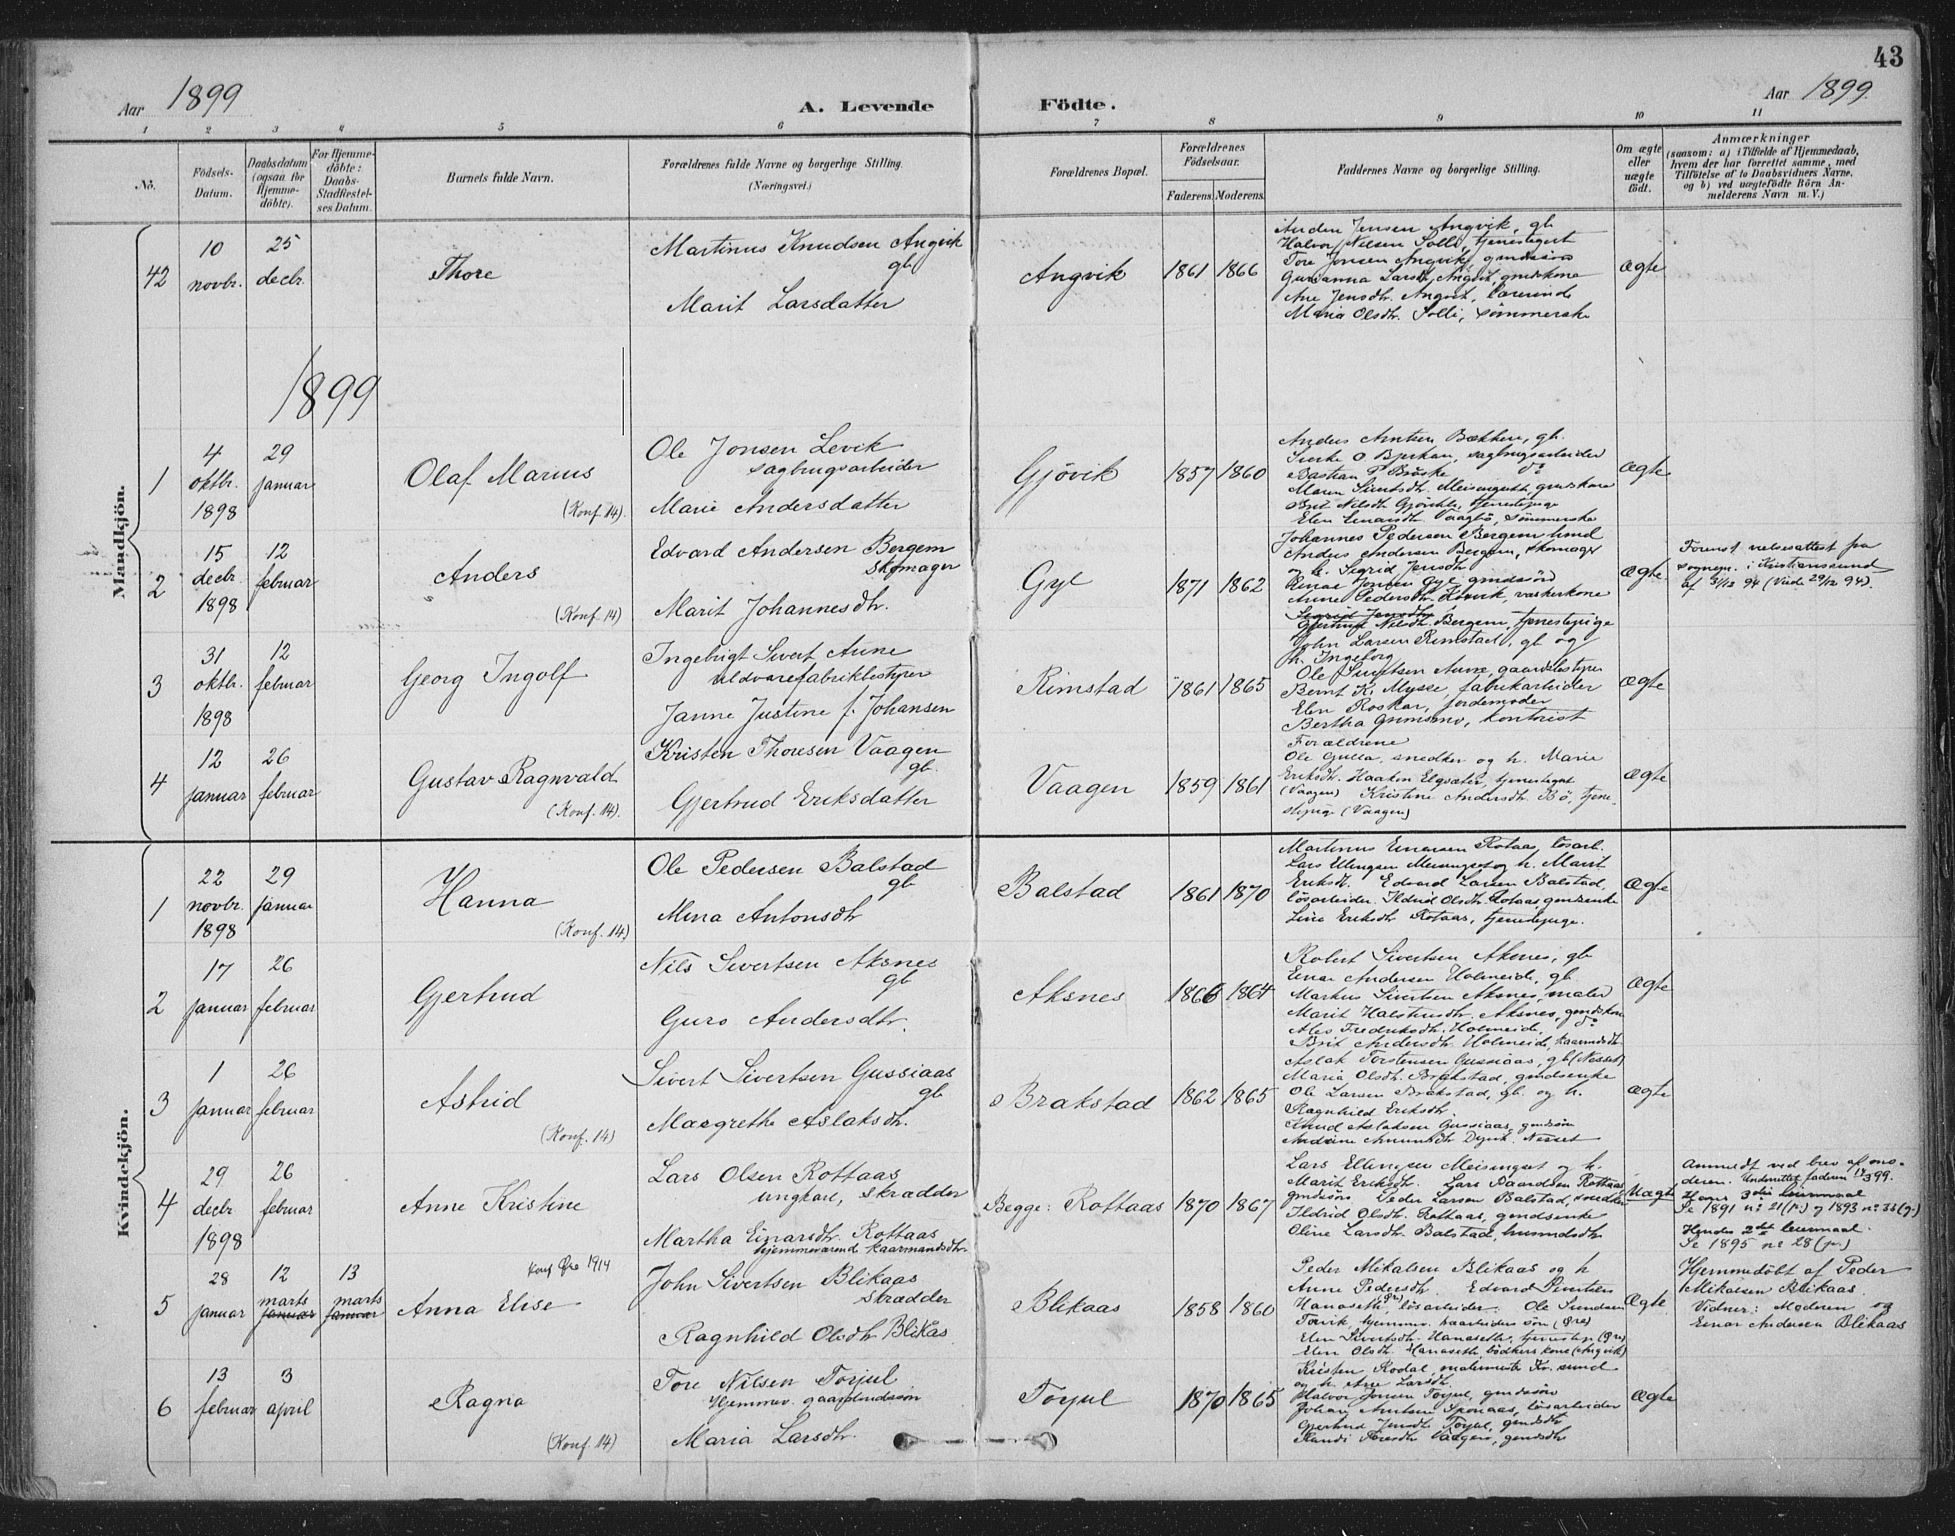 43
Aar 1899
A. Levende Födte.
Aar 1899.
1 2 3 4 5 6 7 8 9 10 11
No.
Födsels-Datum.
Daabsdatum (ogsaa for Hjemme-döbte).
For Hjemme-döbte: Daabs-Stadfæstel-ses Datum.
Barnets fulde Navn.
Forældrenes fulde Navne og borgerlige Stilling.
(Næringsvei.)
Forældrenes Bopæl.
Forældrenes Födselsaar.
Faderens. Moderens.
Faddernes Navne og borgerlige Stilling.
Om ægte eller uægte födt.
Anmærkninger
(saasom: a) i Tilfælde af Hjemmedaab,
hvem der har forrettet samme, med
Tilföielse af to Daabsvidners Navne,
og b) ved uægtefödte Börn An-
melderens Navn m. V.)
Mandkjön.
42
10 novbr.
25 decbr.
Thore
Martinus Knudsen Angvik
gb.
Marit Larsdatter
Angvik
1861 1866
Anders Jensen Angvik, gb
Halvor Nilsen Solli, tjenestegut
Tore Jonsen Angvik, gmdssön
Gurianna Larsdtr. Angvik, gmdskone
Ane Jensdtr. Angvik, lærerinde
Maria Olsdtr. Solli, sömmerske
ægte
1899
1
4 oktbr. 1898
29 januar
Olaf Marius
(Konf. 14).
Ole Jonsen Levik
sagbrugsarbeider
Marie Andersdatter
Gjövik
1857 1860
Anders Arntsen Bækken, gb.
Sverke O Bjerkan, sagbrugsarbeider
Bastian P Brüske do
Maren Sivertsdtr. Meisingset, gmdskone
Brit Nilsdtr. tjenestepige
Elen Einarsdtr. Vaagbö, sömmerske
ægte
2
15 decbr. 1898
12 februar
Anders
(Konf. 14)
Edvard Andersen Bergem
skomager
Marit Johannesdtr.
Gyl
1871 1862
Johannes Pedersen Bergem lund
Anders Andersen Bergem, skomager
og h. Sigrid Jensdtr
Einar Jonsen Gyl gmdssön
Anne Pedersdtr. vaskerkone
Sigrid Jensdtr
Gjertrud Nilsdtr. Bergem, tjenestepige
ægte.
Forenst. vielsesattest fra
sogepr. i Kristianssund
af 31/12 94 (Viede 29/12 94).
3
31 oktbr. 1898
12 februar
Georg Ingolf
Ingebrigt Sivert Aune
uldvarefabrikbestyrer
Janne Justine f. Johansen
Rimstad
1861 1865
John Larsen Rimstad, gb og
h. Ingeborg
Ole Sivertsen Aune, gaardbestyrer
Bernt K. Mysse, fabrikarbeider
Elen Roskar, jordemoder
Bertha Grimsmo, kontorist
Forældrene
ægte
4
12 januar
26 februar
Gustav Ragnvald
(Konf. 14).
Kristen Thoresen Vaagen
gb.
Gjertrud Eriksdatter
Vaagen
1859 1861
Ole Gulla, snedker og h. Marie
Eriksdtr. Haaken Elgsæter, tjenestegut
(Vaagen) Kristine Andersdtr. Bö, tjene-
stepige (Vaagen)
ægte
Kvindekjön.
1
22 novbr. 1898
29 januar
Hanna
(Konf. 14)
Ole Pedersen Balstad
gb
Mina Antonsdtr
Balstad
1861 1870
Martinus Einarsen Rotaas, lösarb.
Lars Ellingsen Meisingset og h. Marit
Eriksdtr. Edvard Larsen Balstad,
lösarbeider. Ildrid Olsdtr. Rotaas, gmdsenke
Line Eriksdtr Rotaas, tjenestepige.
ægte
2
17 januar
26 februar
Gjertrud
Nils Sivertsen Aksnes
gb
Guro Andersdtr.
Aksnes
1866 1864
Robert Sivertsen Aksnes, gb
Einar Andersen Holmeide, gb
Markus Sivertsen Aksnes, maler
Marit Halstensdtr. Aksnes, gmdskone
Ales Fredriksdtr. Holmeide, do
Brit Andersdtr. Holmeide, kaarmdsdtr
ægte
3
1 januar
26 februar
Astrid
(Konf. 14)
Sivert Sivertsen Gussiaas
gb
Margrethe Aslaksdtr.
Brakstad
1862 1865
Aslak Torstensen Gussiaas, gb (Nesset)
Maria Olsdtr. Brakstad, gmdsenke
Ole Larsen Brakstad, gb. og h.
Ragnhild Eriksdtr.
Knud Aslaksen Gussiaas, gmdssön
Nesset
ægte
4
29 decbr 1898
26 februar
Anne Kristine
Konf Øre 1914
Lars Olsen Rottaas
ungkarl, skrædder
Martha Einarsdtr. Rottaas
hjemmeværend kaarmandsdtr.
Begge: Rottaas
1870 1867
Lars Ellingsen Meisingset og h.
Marit Eriksdtr. Lars Baardsen Rottaas
gmdssön Peder Larsen Balstad, snedker
Ildrid Olsdtr. Rottaas, gmdsenke
Oline Larsdtr. Balstad, husmdsdtr
Uægte
Anmeldt ved brev af mo-
deren. Underrettet faderen 14/3 99.
Hans 3die leiermaal
Se 1891 no 21 (p.) og 1893 no 33 (g.)
Hendes 2det leiermaal.
Se 1895 no 28 (p.)
5
28 januar
12 marts januar
13 marts januar
Anna Elise
John Sivertsen Blikaas
skrædder
Ragnhild Olsdtr Blikås
Blikaas
1858 1860
Peder Mikalsen Blikaas og h
Anne Pedersdtr. Edvard Sivertsen
Hanaseth, lösarbeider. Ole Sundsen
Torvik, hjemmev. (Øre)
Elen Sivertsdtr. Hanaseth, tjenestep (Øre)
Elen Olsdtr. Hanaseth, bödkers kone (Angvik)
ægte
Hjemmedöbt af Peder
Mikalsen Blikaas.
Vidner: Moderen og
Einar Andersen Blikaas
6
13 februar
3 april
Ragna
(Konf. 14)
Tore Nilsen Torjul
Hjemmev. gaardmdssön
Maria Larsdtr.
Torjul
1870 1865
Kristen Rodal, malermester Kr.sund
og h. Ane Larsdtr.
Halvor Jonsen Torjul, gmdssön
Johan Arntsen Sponaas, lösarbeider
Gjertrud Jensdtr Torjul, gmdsdtr
Randi Toresdtr Vaagen, gmdsdtr
ægte